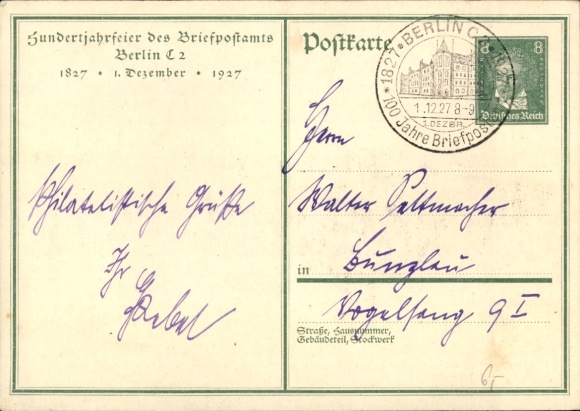 Hundertjahrfeier des Briefpostamts
Berlin C 2
1827 • 1. Dezember • 1927
Philatelistische Grüße
Ihr
Postkarte
1827 * BERLIN C 2 *
1.12.27 8-9
1. DEZBR.
100 Jahre Briefpost
8 8
Deutsches Reich
Herrn
Walter Seltmacher
in Bunzlau
Vogelsang 9 I
Straße, Hausnummer,
Gebäudeteil, Stockwerk
6,-